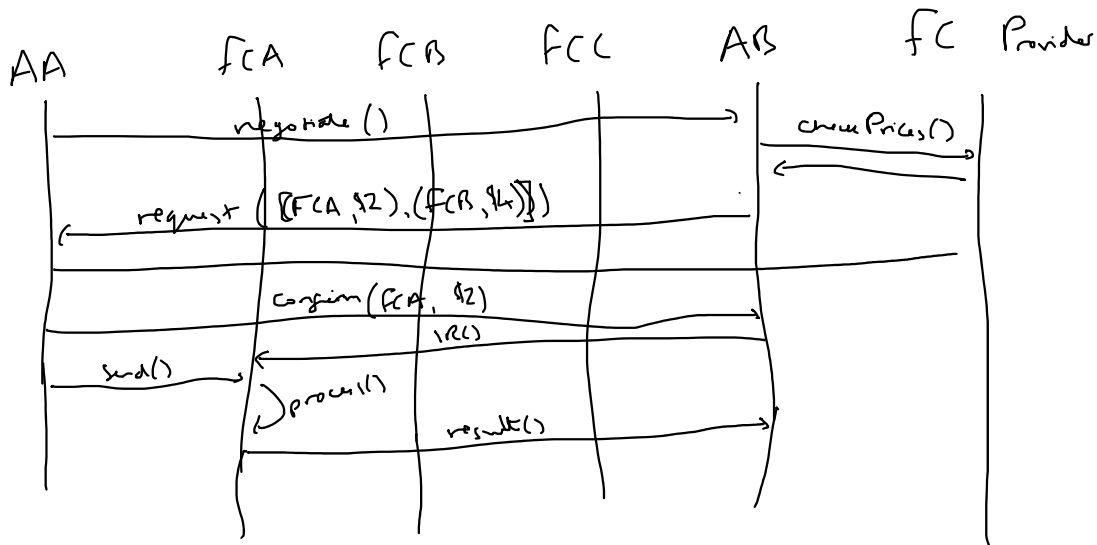 AA fCA fCB fCC AB fC Provider
negotiate()
checkPrices()
request([(FCA,$2),(FCB,$4)])
confirm(fCA, $2)
IR()
send()
process()
result()